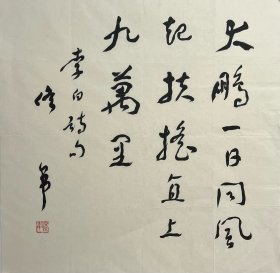 大鹏一日同風
起扶摇直上
九萬里
李白诗句